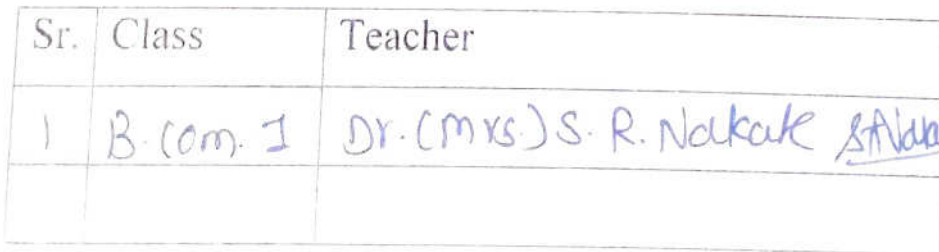 Sr. Class Teacher
1 B.Com. I Dr.(Mrs.) S. R. Nalkate